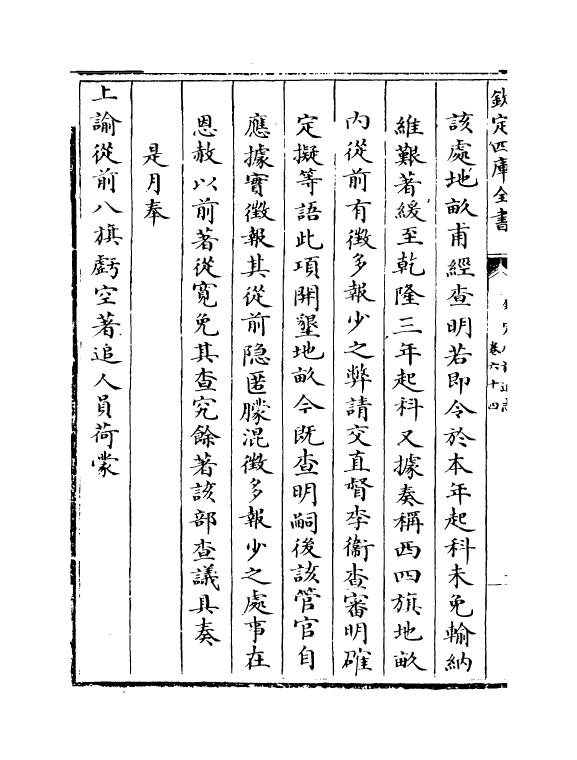 欽定四庫全書
卷六十四
該處地畝甫經查明若即令於本年起科未免輸納
維艱著緩至乾隆三年起科又據奏稱西四旗地畝
内從前有徵多報少之弊請交直督李衞查審明確
定擬等語此項開墾地畝今既查明嗣後該管官自
應據實徵報其從前隐匿朦混徵多報少之處事在
恩赦以前著從寛免其查究餘著該部查議具奏
是月奉
上諭從前八旗虧空著追人員荷蒙